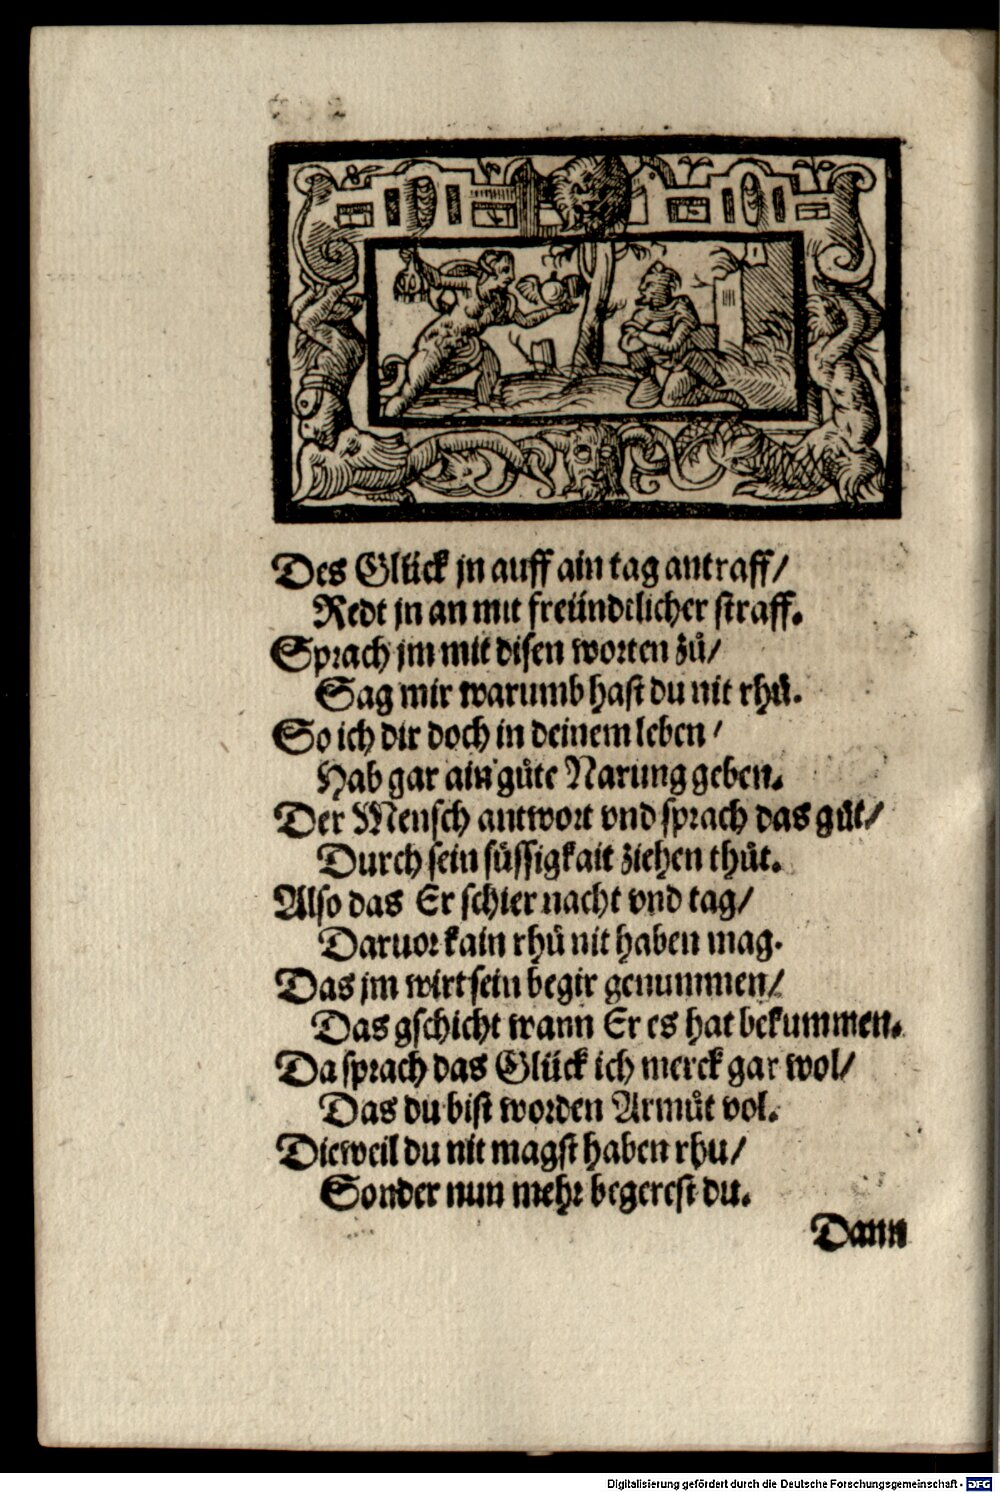 Des Glück jn auff ain tag antraff/
Redt jn an mit freündtlicher straff.
Sprach jm mit disen worten zů/
Sag mir warumb hast du nit rhů.
So ich dir doch in deinem leben/
Hab gar ain gůte Narung geben.
Der Mensch antwort vnd sprach das gůt/
Durch sein süssigkait ziehen thůt.
Also das Er schier nacht vnd tag/
Daruor kain rhů nit haben mag.
Das jm wirt sein begir genummen/
Das gschicht wann Er es hat bekummen.
Da sprach das Glück ich merck gar wol/
Das du bist worden Armůt vol.
Dieweil du nit magst haben rhu/
Sonder nun mehr begerest du.
Dann
Digitalisierung gefördert durch die Deutsche Forschungsgemeinschaft - DFG